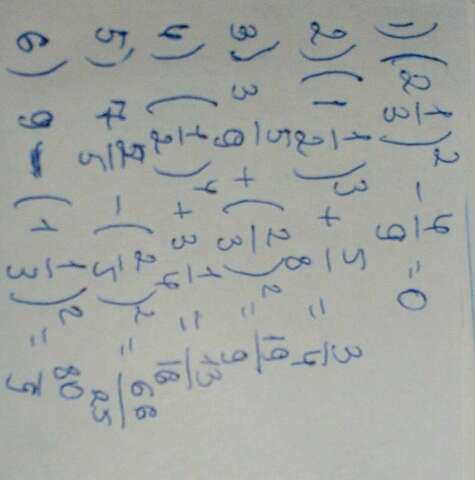 1) (2 1/3)² - 4/9 = 0
2) (1 1/2)³ + 5/8 = 3/4
3) 3 5/9 + (2/3)² = 19/9
4) (1/2)⁴ + 3 1/4 = 13/18
5) 7 2/5 - (2/5)² = 66/25
6) 9 - (1 1/3)² = 80